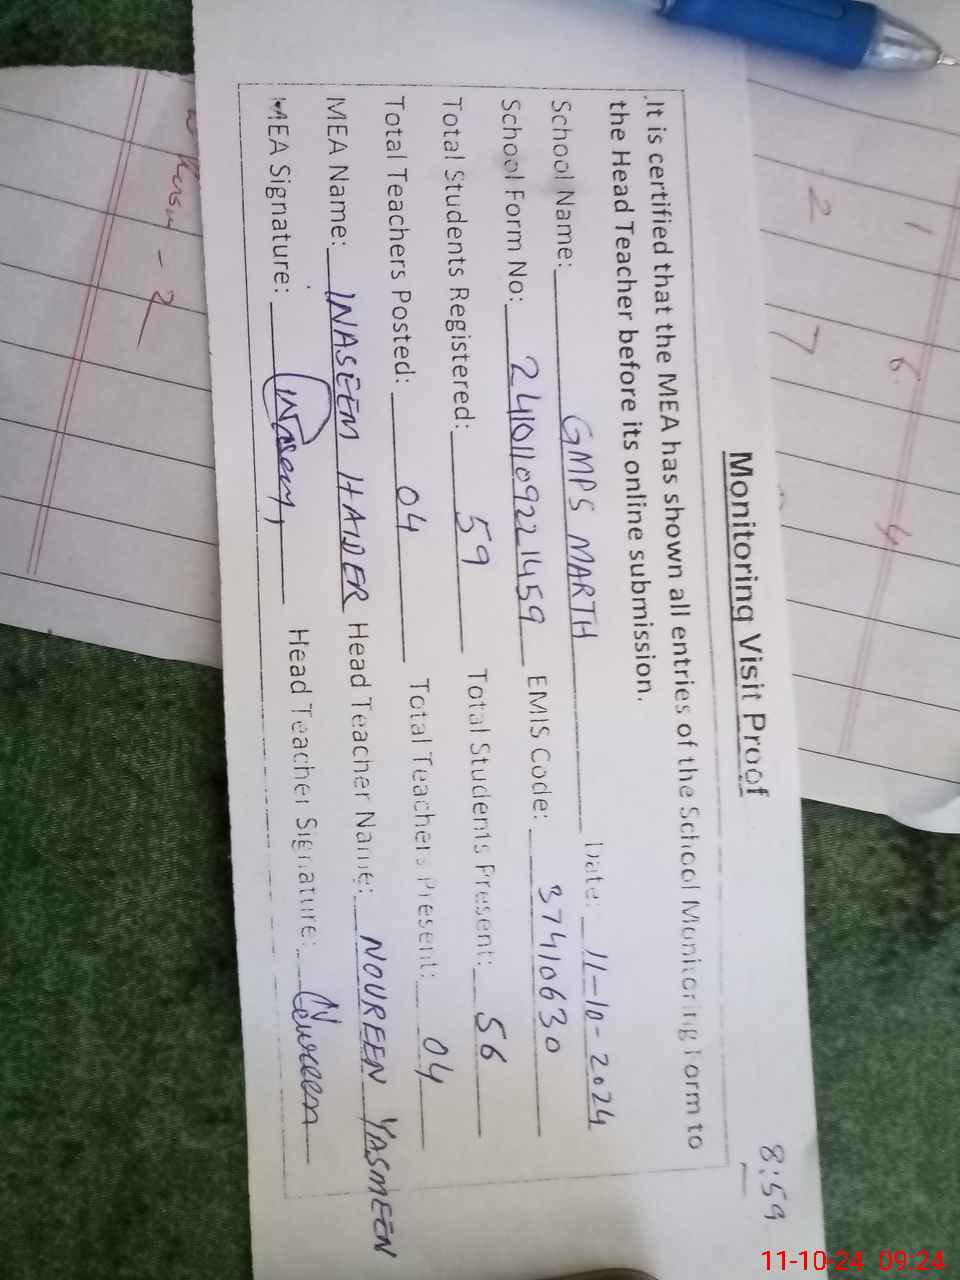 8:59
Monitoring Visit Proof
.It is certified that the MEA has shown all entries of the School Monitoring Form to
the Head Teacher before its online submission.
School Name: GMPS MARTH Date: 11-10-2024
School Form No: 24101109221459 EMIS Code: 37410630
Total Students Registered: 59 Total Students Present: 56
Total Teachers Posted: 04 Total Teachers Present: 04
MEA Name: WASEEM HAIDER Head Teacher Name: NOUREEN YASMEEN
MEA Signature: Waseem Head Teacher Signature: Noureen
1
2
7
6
4
11-10-24 09:24